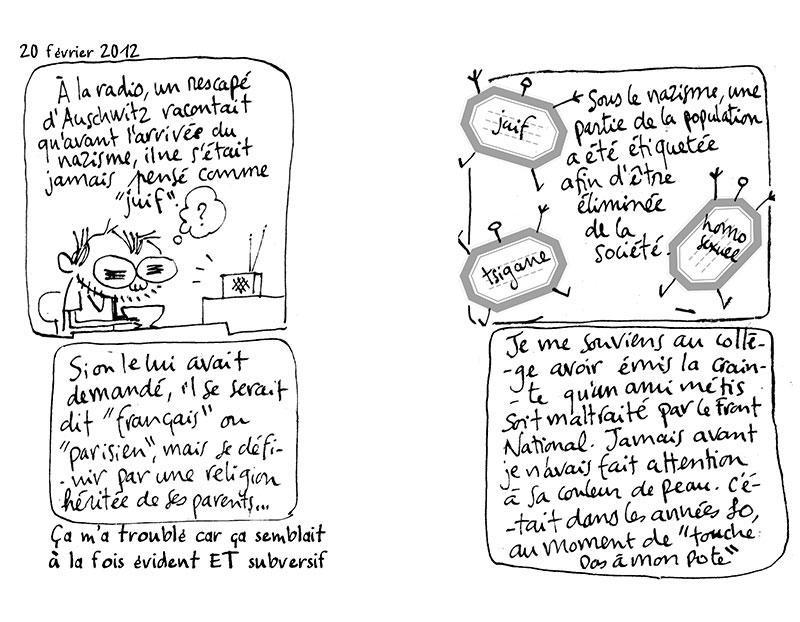 20 février 2012
À la radio, un rescapé
d'Auschwitz racontait
qu'avant l'arrivée du
nazisme, il ne s'était
jamais pensé comme
"juif".
?
Si on le lui avait
demandé, il se serait
dit "français" ou
"parisien", mais se défi-
-nir par une religion
héritée de ses parents...
Ça m'a troublé car ça semblait
à la fois évident ET subversif
juif
Sous le nazisme, une
partie de la population
a été étiquetée
afin d'être
éliminée
de la
société.
tsigane
homo
sexuel
Je me souviens au collè-
-ge avoir émis la crain-
-te qu'un ami métis
soit maltraité par le Front
National. Jamais avant
je n'avais fait attention
à sa couleur de peau. C'é-
-tait dans les années 80,
au moment de "touche
pas à mon pote"